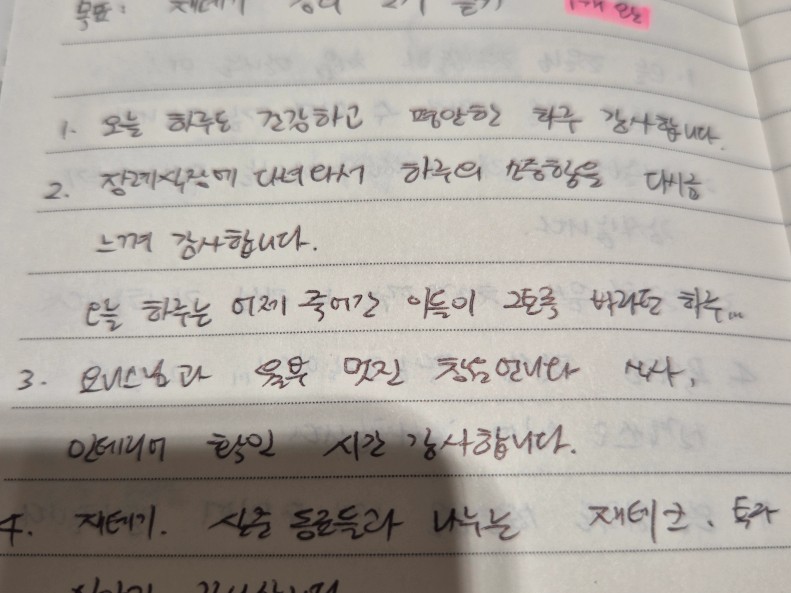 목표: 재테기
1. 오늘 하루도 건강하고 평안한 하루 감사합니다.
2. 장례식장에 다녀와서 하루의 소중함을 다시금
느껴 감사합니다.
오늘 하루는 어제 죽어간 이들이 그토록 바라던 하루...
3. 요니스님과 멋진 언니와 식사,
인테리어 확인 시간 감사합니다.
4. 재테기. 동료들과 나누는 재테크, 독과
감사합니다